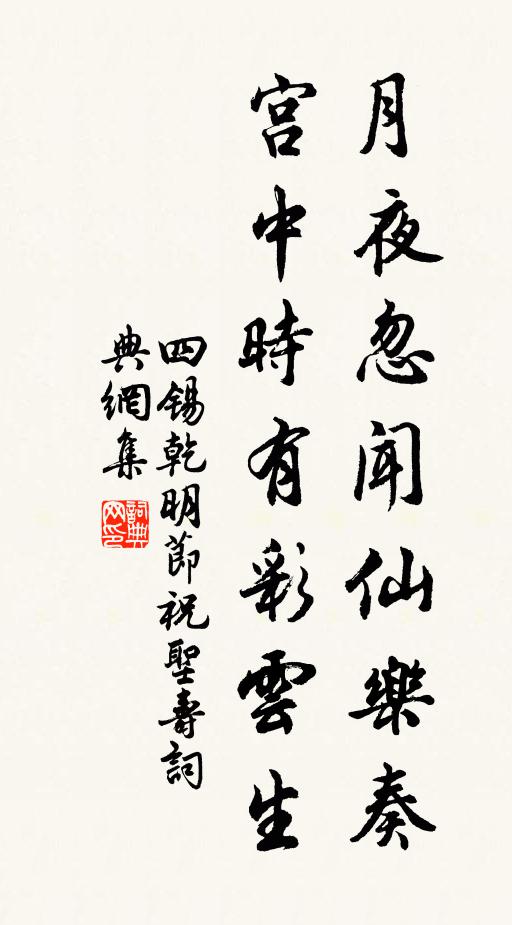 月夜忽聞仙樂奏
宮中時有彩雲生
四錫乾明節祝聖壽詞
典網集
詞典
网印